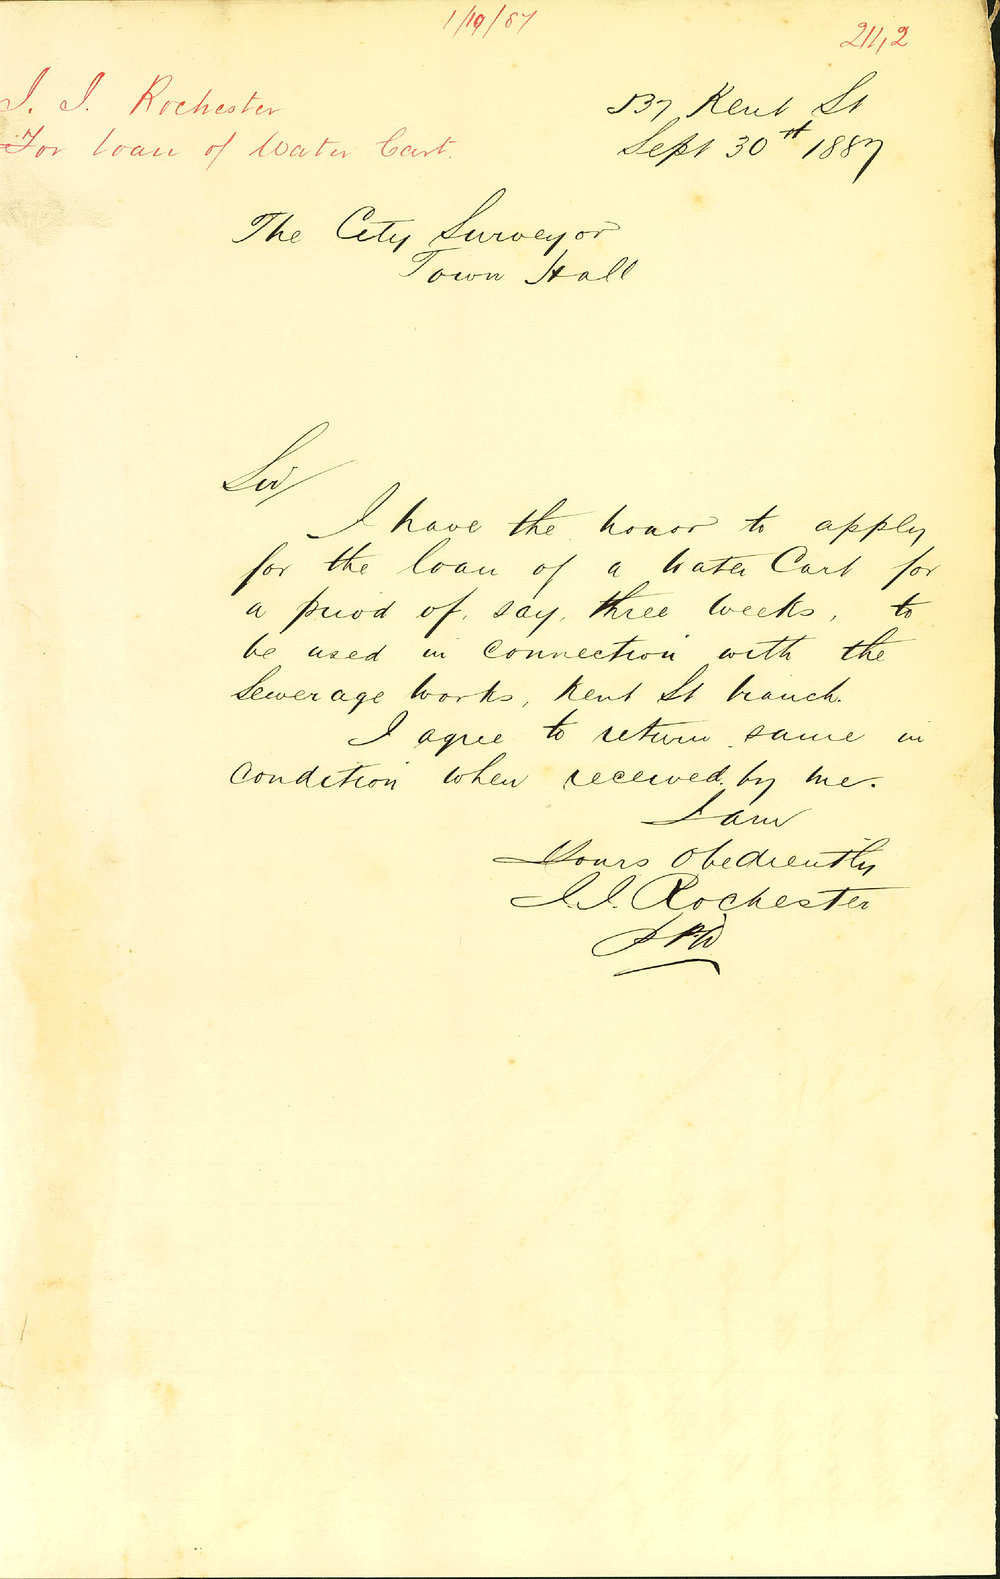 1/10/87
2112
J. J. Rochester
For loan of Water Cart.
537 Kent St
Sept 30th 1887
The City Surveyor
Town Hall
Sir/
I have the honor to apply
for the loan of a Water Cart for
a period of, say, three weeks, to
be used in connection with the
Sewerage Works, Kent St branch.
I agree to return same in
condition when received by me.
I am
Yours Obediently
J. J. Rochester